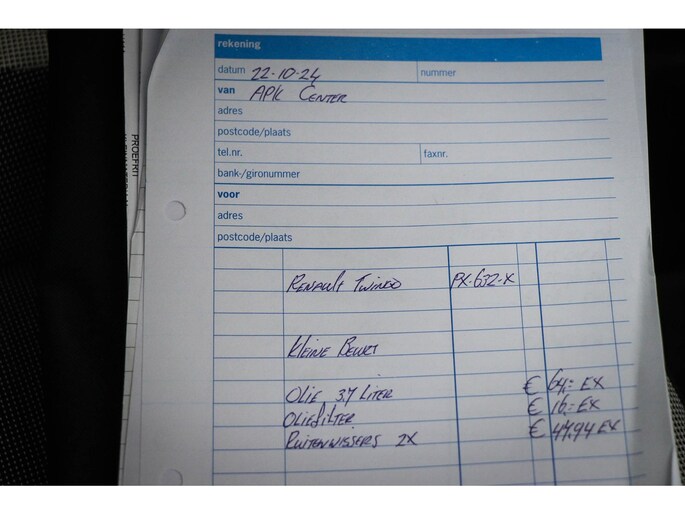 rekening
datum 22-10-24 nummer
van APK CENTER
adres
postcode/plaats
tel.nr. faxnr.
bank-/gironummer
voor
adres
postcode/plaats
RENAULT TWINGO PX-632-X
KLEINE BEURT
OLIE 3.7 LITER € 64,= EX
OLIEFILTER € 16,= EX
RUITENWISSERS 2X € 47,94 EX
PROEFRIT